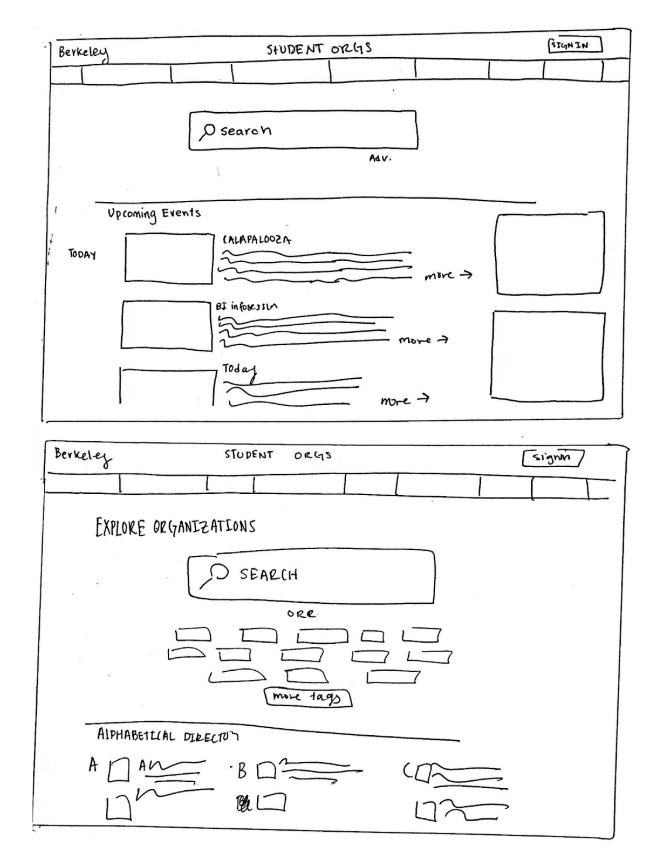 Berkeley STUDENT ORGS SIGN IN
search
Adv.
Upcoming Events
TODAY
CALAPALOOZA
more →
BI infosession
more →
Today
more →
Berkeley STUDENT ORGS signin
EXPLORE ORGANIZATIONS
SEARCH
ORR
more tags
ALPHABETICAL DIRECTORY
A B C